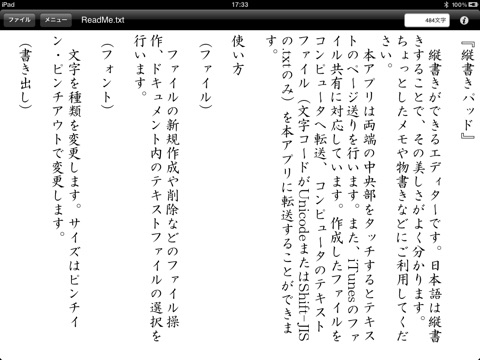 iPad
17:33
ファイル
メニュー
ReadMe.txt
484文字
『縦書きパッド』
　縦書きができるエディターです。日本語は縦書
きすることで、その美しさがよく分かります。
ちょっとしたメモや物書きなどにご利用してくだ
さい。
　本アプリは両端の中央部をタッチするとテキス
トのページ送りを行います。また、iTunesのファ
イル共有に対応しています。作成したファイルを
コンピュータへ転送、コンピュータのテキスト
ファイル（文字コードがUnicodeまたはShift-JIS
の.txtのみ）を本アプリに転送することができま
す。
使い方
（ファイル）
　ファイルの新規作成や削除などのファイル操
作、ドキュメント内のテキストファイルの選択を
行います。
（フォント）
　文字を種類を変更します。サイズはピンチイ
ン・ピンチアウトで変更します。
（書き出し）